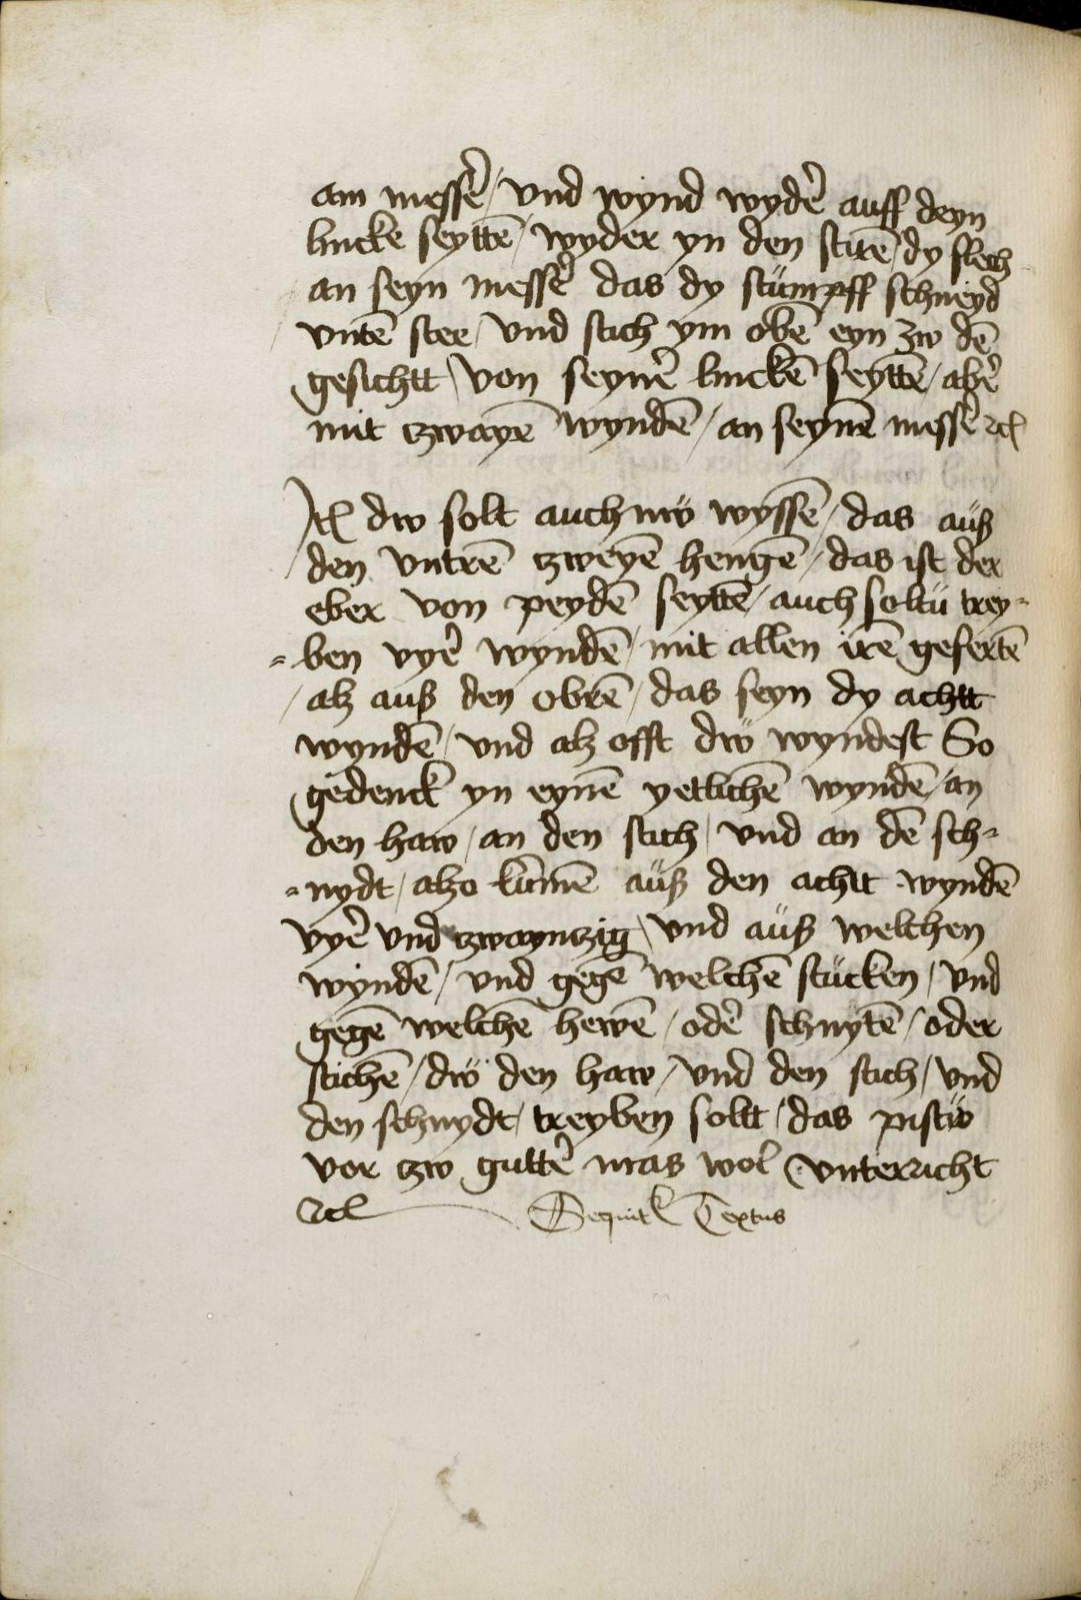 am messer̄ / vnd wynd wyder̄ auff deyn
lincke seyttē / wyder yn den stirē / dy flech
an seyn messer̄ das dy stümpff schneyd
vntē stee / vnd stich ym obē eyn zw dē
gesichtt / von seyner̄ linckē seyttē / aber̄
mit tzwayē wyndē / an seynē messer̄ ꝛcꝭ
Jtꝭ dw solt auch nẅ wyssē / das auß
den vntrē tzweyē hengē / das ist der
eber von peydē seyttē / auch soltü trey-
-ben vyer̄ wyndē / mit allen irē gefertē
/ alz auß den obrē / das seyn dy achtt
wyndē / vnd alz offt dẅ wyndest So
gedenck yn eynē yetlichē wyndē / an
den haw / an den stich / vnd an dē sch-
-nydt / alzo kūmē auß den achtt wyndē
vyer̄ vnd tzwayntzig / vnd auß welchen
wyndē / vnd gegē welchē stücken / vnd
gegē welchē hewē / oder̄ schnytē / oder
stichē / dẅ den haw / vnd den stich / vnd
den schnydt / treyben soltt / das pistẅ
vor zw gutter̄ mas wol vnterricht
ꝛcꝭ Sequitꝛ Textus